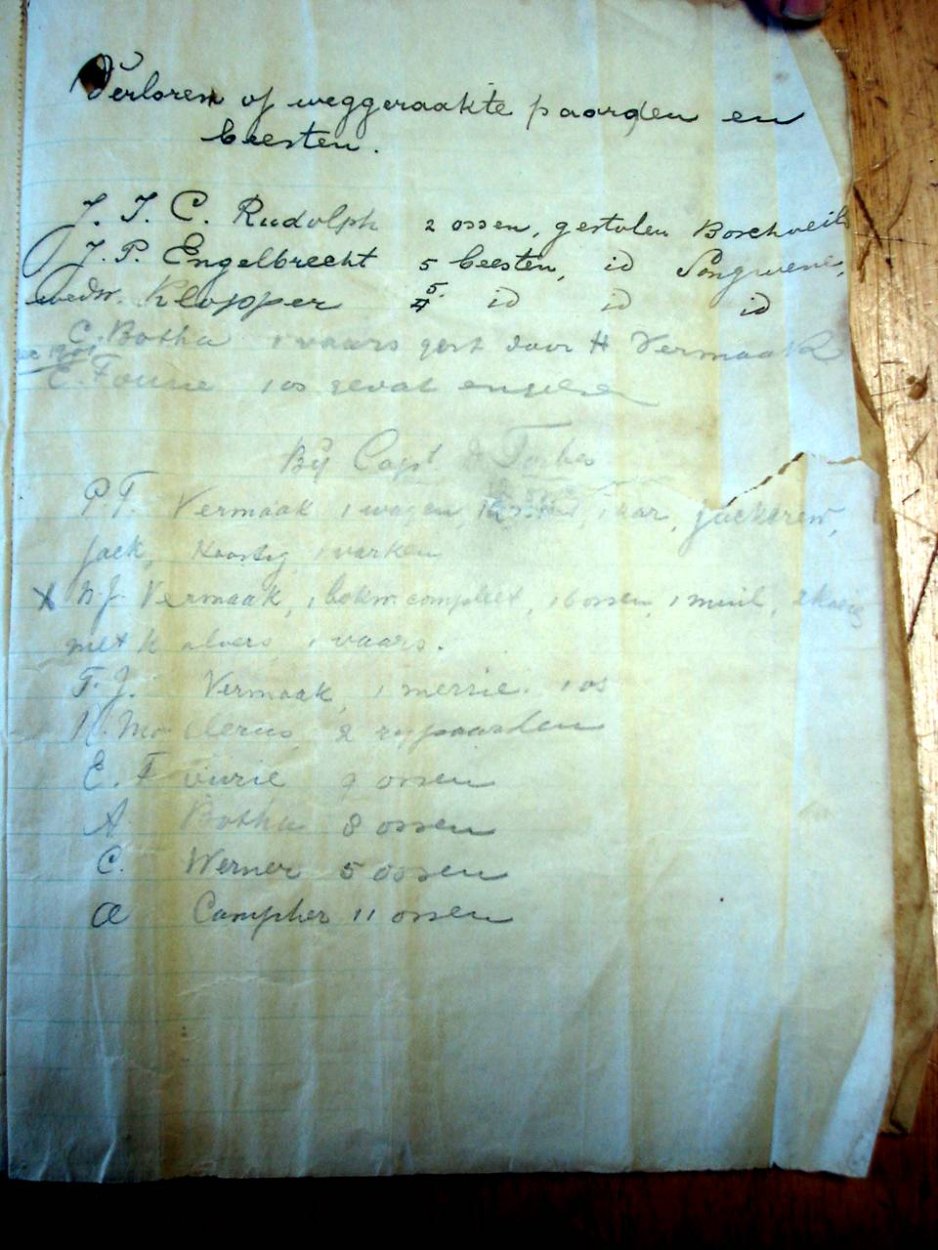 Verloren of weggeraakte paarden en
beesten.
J. J. C. Rudolph 2 ossen, gestolen Boschveld
J. P. Engelbrecht 5 beesten, id
wedw. Klopper 5. id id id
C. Botha 1 vaars gest door H Vermaak
E. Fourie 1 os gevat
Bij Capt Forbes
P. J. Vermaak 1 wagen, 1 kar,
jack, 1 varken
X Vermaak, 1 compleet, 16 ossen, 1 muil, 2 koeie
met kalvers, 1 vaars.
T. J. Vermaak, 1 merrie. 1 os
2 rypaarden
E. Fourie 9 ossen
A Botha 8 ossen
C. Werner 5 ossen
A Campher 11 ossen